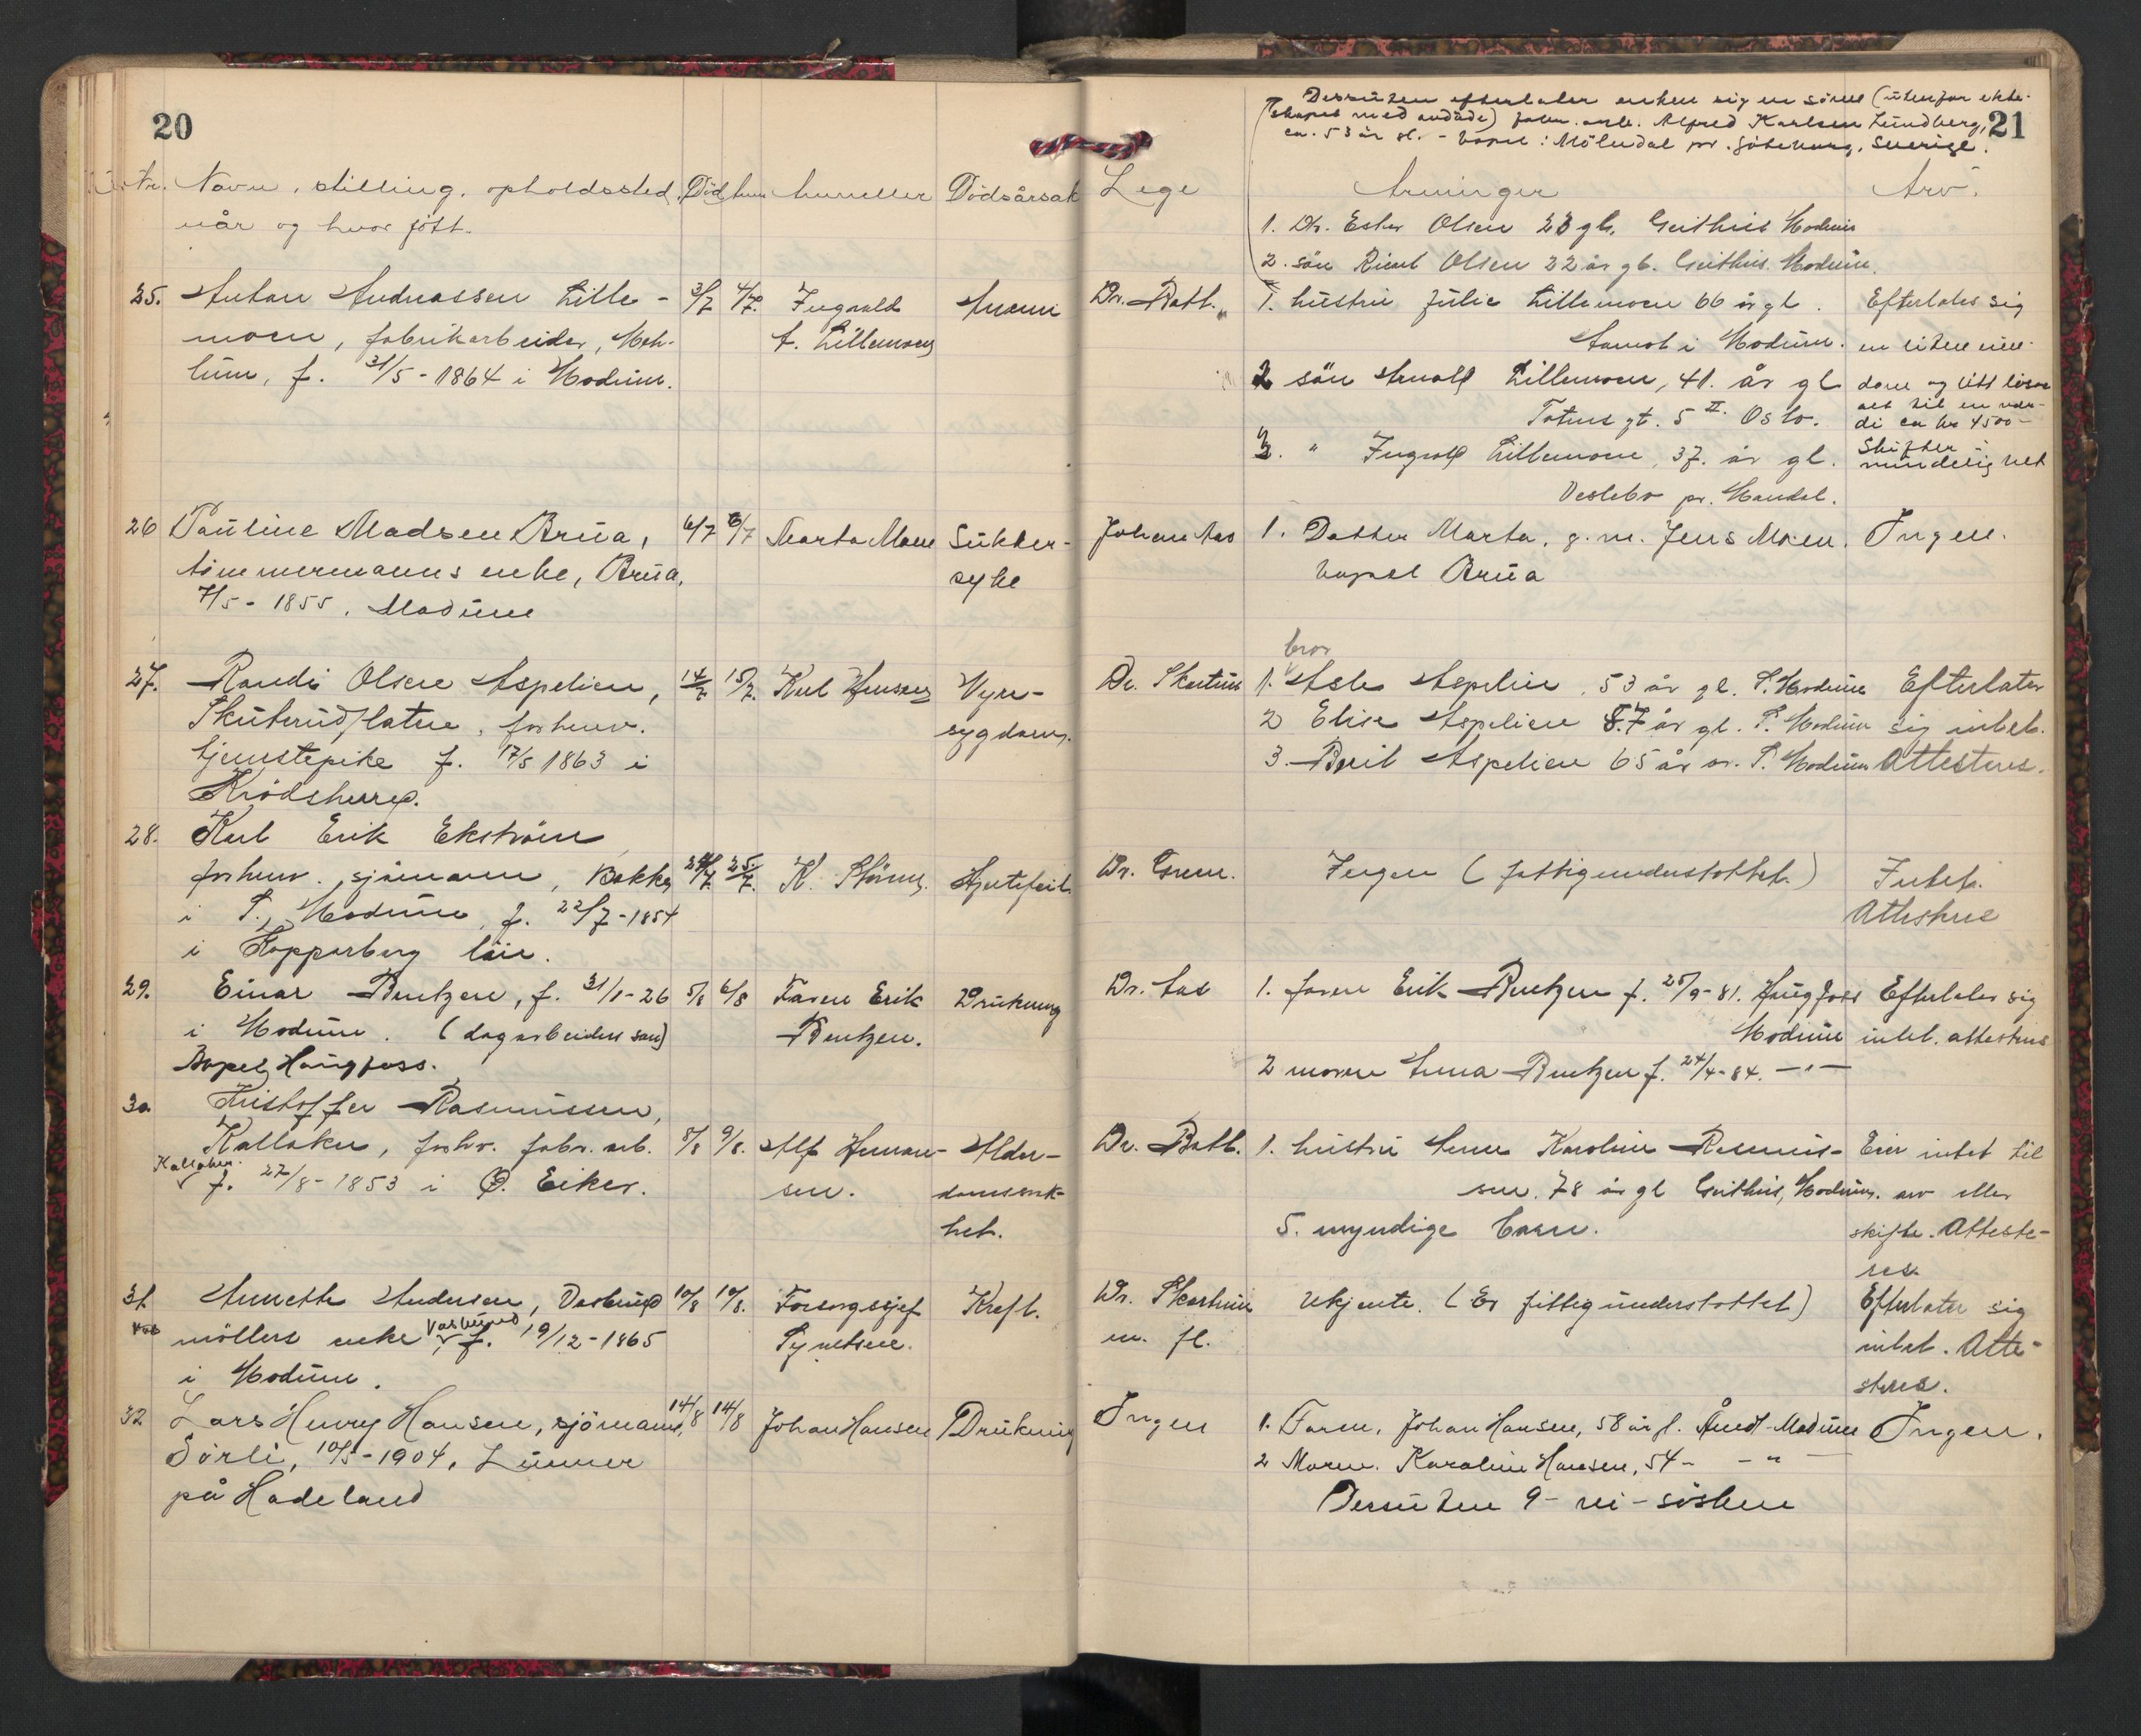 20
Nr. Navn, stilling, opholdssted, Död hvem Anmelder Dödsårsak
når og hvor fött.
25. Anton Andreassen Lille- 3/7 4/7. Ingvald Anemi
moen, fabrikarbeider,
A. Lillemoen
f. 31/5-1864 i Modum.
26 Pauline Madsen Brua, 6/7 6/7 Marta Moen Sukker-
tömmermanns enke, Brua, syke
7/5-1855. Modum
27. Randi Olsen Aspelien, 14/7 15/7. Karl Hansen
Skuterudflaten, forhenv. sygdom.
tjenestepike f. 17/5 1863 i
Krödsherred.
28. Karl Erik Ekström
forhenv. sjömann, Bakke 24/7. 25/7. K. Hjertefeil.
i S. Modum, f. 22/7-1854
i Kopparberg län.
29. Einar Bentzen, f. 31/1-26 5/8 6/8 Faren Erik Drukning
i Modum. (dagarbeiders sön) Bentzen.
Bopel Haugfoss.
30 Kristoffer Rasmussen,
Kalloken, forhv. fabr. arb. 8/8 9/8. Alf Herman- Alder-
Kalloken.
f. 27/8-1853 i Ö. Eiker. sen. domssvak-
het.
31 Annethe Andersen, 10/8 10/8. Forsorgssjef Kreft.
möllers enke f. 19/12-1865
i Modum.
32 Lars Henry Hansen, sjömann, 14/8 14/8 Johan Hansen Drukning
Sörli, 10/5-1904, Lunner
på Hadeland
21
Dessuten efterlater enken sig en sönn (utenfor ekte-
skapet med avdöde) Alfred Karlsen Lundberg,
ca. 53 år gl. - bopel: Mölndal pr. Göteborg, Sverige.
Lege Arvinger Arv.
1. Dtr. Ester Olsen 23 gl. Geithus Modum
2. sön Olsen 22 år gl. Geithus. Modum.
Dr. Bath. 1. hustru Julie Lillemoen 66 år gl. Efterlater sig
Åmot i Modum. en liten eien-
2 sön Arnolf Lillemoen, 41. år gl dom og litt lösöre
Totens gt. 5 II. Oslo. alt til en ver-
di ca kr 4500-
3. " Ingvald Lillemoen, 37. år gl. Skifter
minnelig
pr. Mandal.
Johan Aas 1. Datter Marta, g.m. Jens Moen. Ingen.
bopel Brua
bror
Dr. Skartum 1. Asle Aspelien, 53 år gl. S. Modum Efterlater
2 Elise Aspelien 57 år gl. S. Modum sig intet.
3. Berit Aspelien 65 år S. Modum Attesteres.
Dr. Ingen (fattigunderstöttet.) Intet.
Attesteres
Dr. Aas 1. faren Erik Bentzen f. 25/9-81. Haugfoss Efterlater sig
Modum intet. attesteres
2 moren Anna Bentzen f. 24/4-84. -"-
Dr. Bath. 1. hustru Anne Karoline Rasmus- Eier intet til
sen, 78 år gl Geithus, Modum. arv eller
5. myndige barn. skifte. Atteste-
res
Dr. Skartum Ukjente. (Er fattigunderstöttet) Efterlater sig
m. fl. intet. Atte-
steres.
Ingen 1. Faren, Johan Hansen, 58 år gl. Åmot-Modum Ingen.
2 Moren. Karoline Hansen, 54 - - " -
Dessuten 9 - ni - sösken